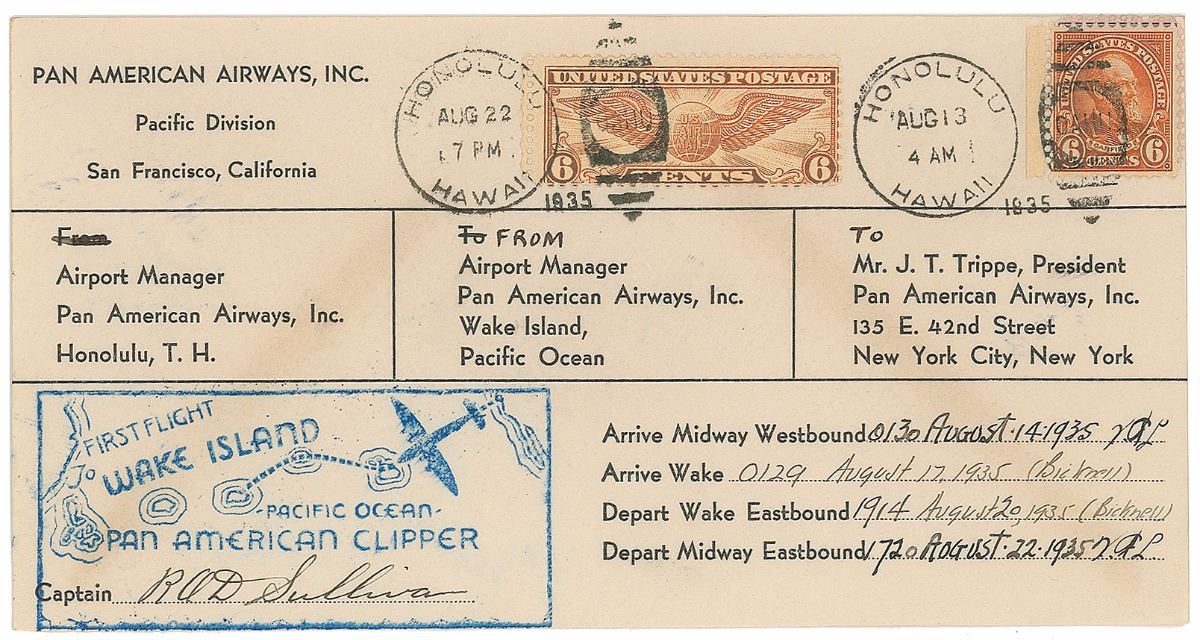 PAN AMERICAN AIRWAYS, INC.
Pacific Division
San Francisco, California
HONOLULU
AUG 22
7 PM
HAWAII
1935
UNITED STATES POSTAGE
U.S. AIR MAIL
6 CENTS 6
HONOLULU
AUG 13
4 AM
HAWAII
1935
UNITED STATES POSTAGE
GARFIELD
6 CENTS 6
From
Airport Manager
Pan American Airways, Inc.
Honolulu, T. H.
To FROM
Airport Manager
Pan American Airways, Inc.
Wake Island,
Pacific Ocean
TO
Mr. J. T. Trippe, President
Pan American Airways, Inc.
135 E. 42nd Street
New York City, New York
FIRST FLIGHT
TO
WAKE ISLAND
-PACIFIC OCEAN-
PAN AMERICAN CLIPPER
Captain ROD Sullivan
Arrive Midway Westbound 0130 AUGUST·14·1935
Arrive Wake 0129 August 17, 1935 (Bicknell)
Depart Wake Eastbound 1914 August 20, 1935 (Bicknell)
Depart Midway Eastbound 1720 AUGUST·22·1935